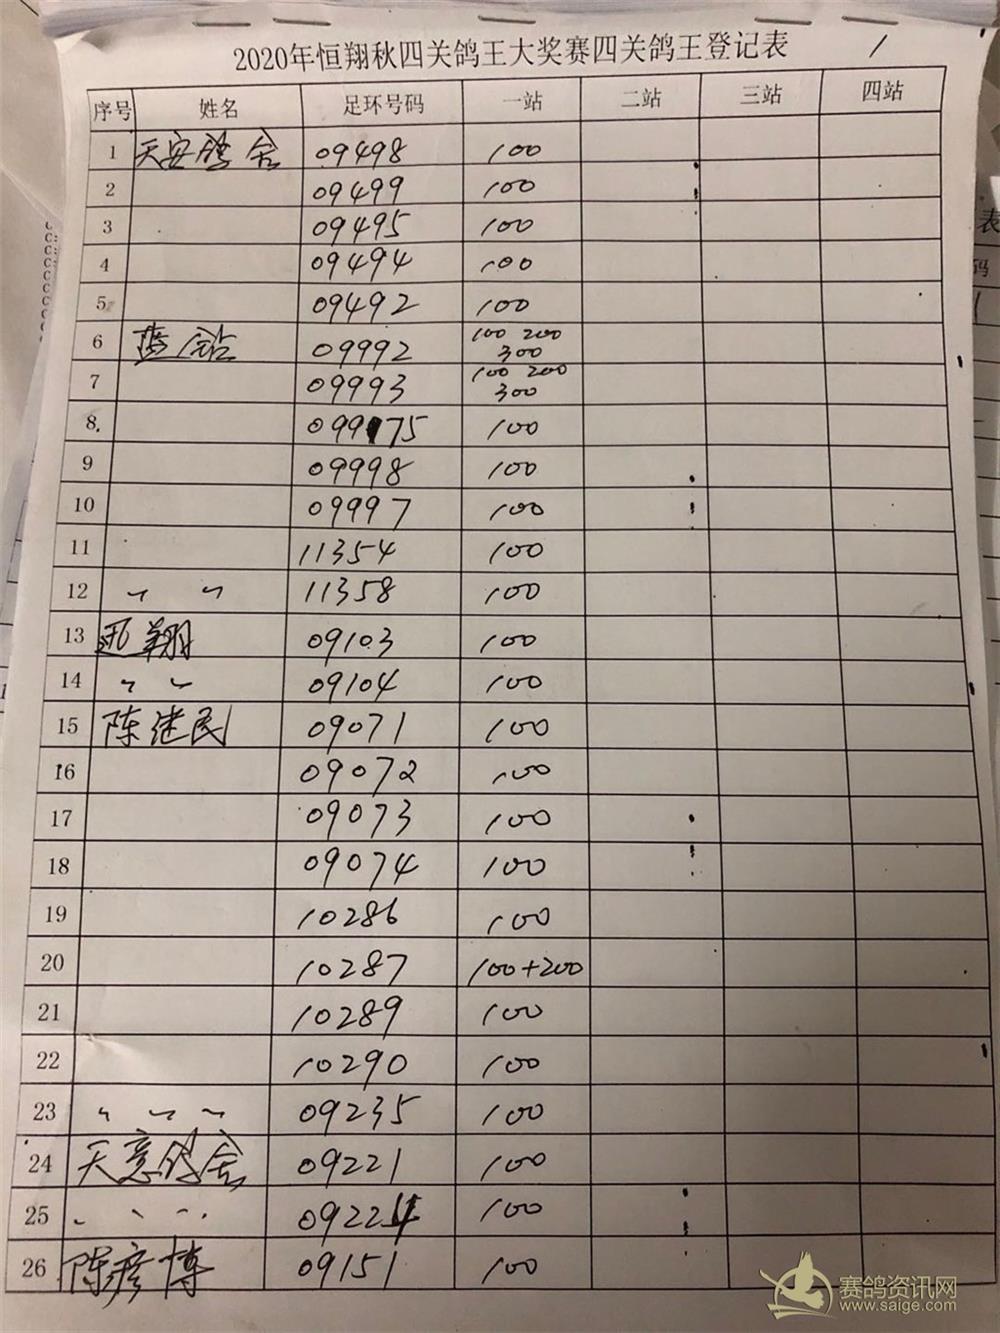 2020年恒翔秋四关鸽王大奖赛四关鸽王登记表 1
序号 姓名 足环号码 一站 二站 三站 四站
1 天安鸽舍 09498 100
2 09499 100
3 09495 100
4 09494 100
5 09492 100
6 蓝钻 09992 100 200
300
7 09993 100 200
300
8 09975 100
9 09998 100
10 09997 100
11 11354 100
12 〃 〃 11358 100
13 迅翔 09103 100
14 〃 〃 09104 100
15 陈建民 09071 100
16 09072 100
17 09073 100
18 09074 100
19 10286 100
20 10287 100+200
21 10289 100
22 10290 100
23 〃 〃 〃 09235 100
24 天意鸽舍 09221 100
25 09224 100
26 陈彦博 09151 100
表
码
赛鸽资讯网
www.saige.com